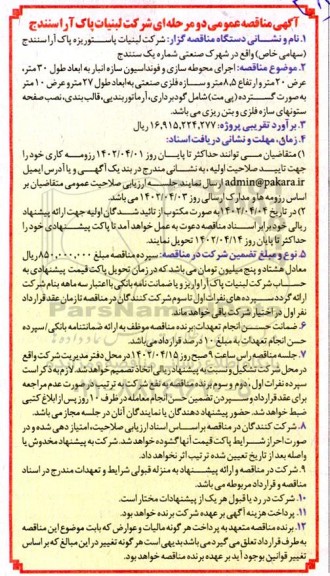 آگهی مناقصه عمومی دو مرحله ای شرکت لبنیات پاک آرا سنندج
۱. نام و نشانی دستگاه مناقصه گزار: شرکت لبنیات پاستوریزه پاک آرا سنندج
(سهامی خاص) واقع در شهرک صنعتی شماره یک سنندج
۲. موضوع مناقصه: اجرای محوطه سازی و فونداسیون سازه انبار به ابعاد طول ۳۰ متر،
عرض ۲۰ متر و ارتفاع ۸,۵ متر و سازه فلزی صنعتی به ابعاد طول ۲۷ متر و عرض ۱۰ متر
به صورت گسترده (پی مت) شامل گودبرداری، آرماتوربندی، قالب بندی، نصب صفحه
ستونهای سازه فلزی و بتن ریزی می باشد.
۳. برآورد تقریبی پروژه: ۱۶,۹۱۵,۲۲۴,۲۷۷ ریال
۴. زمان، مهلت و نشانی دریافت اسناد:
۱) متقاضیان می توانند حداکثر تا پایان روز ۱۴۰۲/۰۴/۰۱ رزومه کاری خود را
جهت تایید صلاحیت اولیه، به نشانی مندرج در بند یک آگهی و یا آدرس ایمیل
admin@pakara.ir ارسال نمایند جلسه ارزیابی صلاحیت عمومی متقاضیان بر
اساس رزومه ها و مدارک ارسالی روز ۱۴۰۲/۰۴/۰۳ می باشد.
۲) در تاریخ ۱۴۰۲/۰۴/۰۴ به صورت مکتوب از تائید شدگان اولیه جهت ارائه پیشنهاد
ریالی خود برابر اسناد مناقصه دعوت به عمل خواهد آمد تا پاکت پیشنهادی خود را
حداکثر تا پایان روز ۱۴۰۲/۰۴/۱۴ تحویل نمایند.
۵. نوع و مبلغ تضمین شرکت در مناقصه: سپرده مناقصه مبلغ ۸۵۰,۰۰۰,۰۰۰ ریال
معادل هشتاد و پنج میلیون تومان می باشد که در زمان تحویل پاکت قیمت پیشنهادی به
حساب شرکت لبنیات پاک آرا واریز و یا ضمانت نامه بانکی با اعتبار سه ماهه بنام شرکت
ارائه گردد سپرده های نفرات اول تا سوم شرکت کنندگان در مناقصه تا زمان عقد قرارداد
نفر اول در اختیار شرکت باقی خواهد ماند.
۶. ضمانت حسن انجام تعهدات: برنده مناقصه موظف به ارائه ضمانتنامه بانکی/سپرده
حسن انجام تعهدات به مبلغ ۱۰ درصد قرارداد می باشد.
۷. جلسه مناقصه راس ساعت ۹ صبح روز ۱۴۰۲/۰۴/۱۵ در محل دفتر مدیریت شرکت واقع
در محل شرکت تشکیل و نسبت به پیشنهاد ریالی اتخاذ تصمیم خواهد شد. لازم به ذکر است
سپرده نفرات اول، دوم و سوم برنده مناقصه به نفع شرکت به ترتیب در صورت عدم مراجعه
برای عقد قرارداد و سپردن تضمین حسن انجام معامله در ظرف ۱۰ روز پس از ابلاغ کتبی
ضبط خواهد شد. حضور پیشنهاد دهندگان یا نمایندگان آنان در جلسه مجاز می باشد.
۸. شرکت کنندگان در مناقصه بر اساس اسناد ارزیابی صلاحیت، امتیاز دهی شده و در
صورت احراز شرایط پاکت قیمت آنها گشوده خواهد شد. شرکت به پیشنهاد مخدوش یا
واصله بعد از تاریخ تعیین شده ترتیب اثر نخواهد داد.
۹. شرکت در مناقصه و ارائه پیشنهاد به منزله قبولی شرایط و تعهدات مندرج در اسناد
مناقصه و قرارداد مربوطه می باشد.
۱۰. شرکت در رد یا قبول هر یک از پیشنهادات مختار است.
۱۱. پرداخت هزینه آگهی بر عهده شرکت برنده خواهد بود.
۱۲. برنده مناقصه متعهد به پرداخت هر گونه مالیات و عوارض که بابت موضوع این مناقصه
به طرف قرارداد تعلق می گیرد می باشد بدیهی است هر گونه تغییر در این مبالغ که بر اساس
تغییر قوانین بوجود آید بر عهده برنده مناقصه خواهد بود.